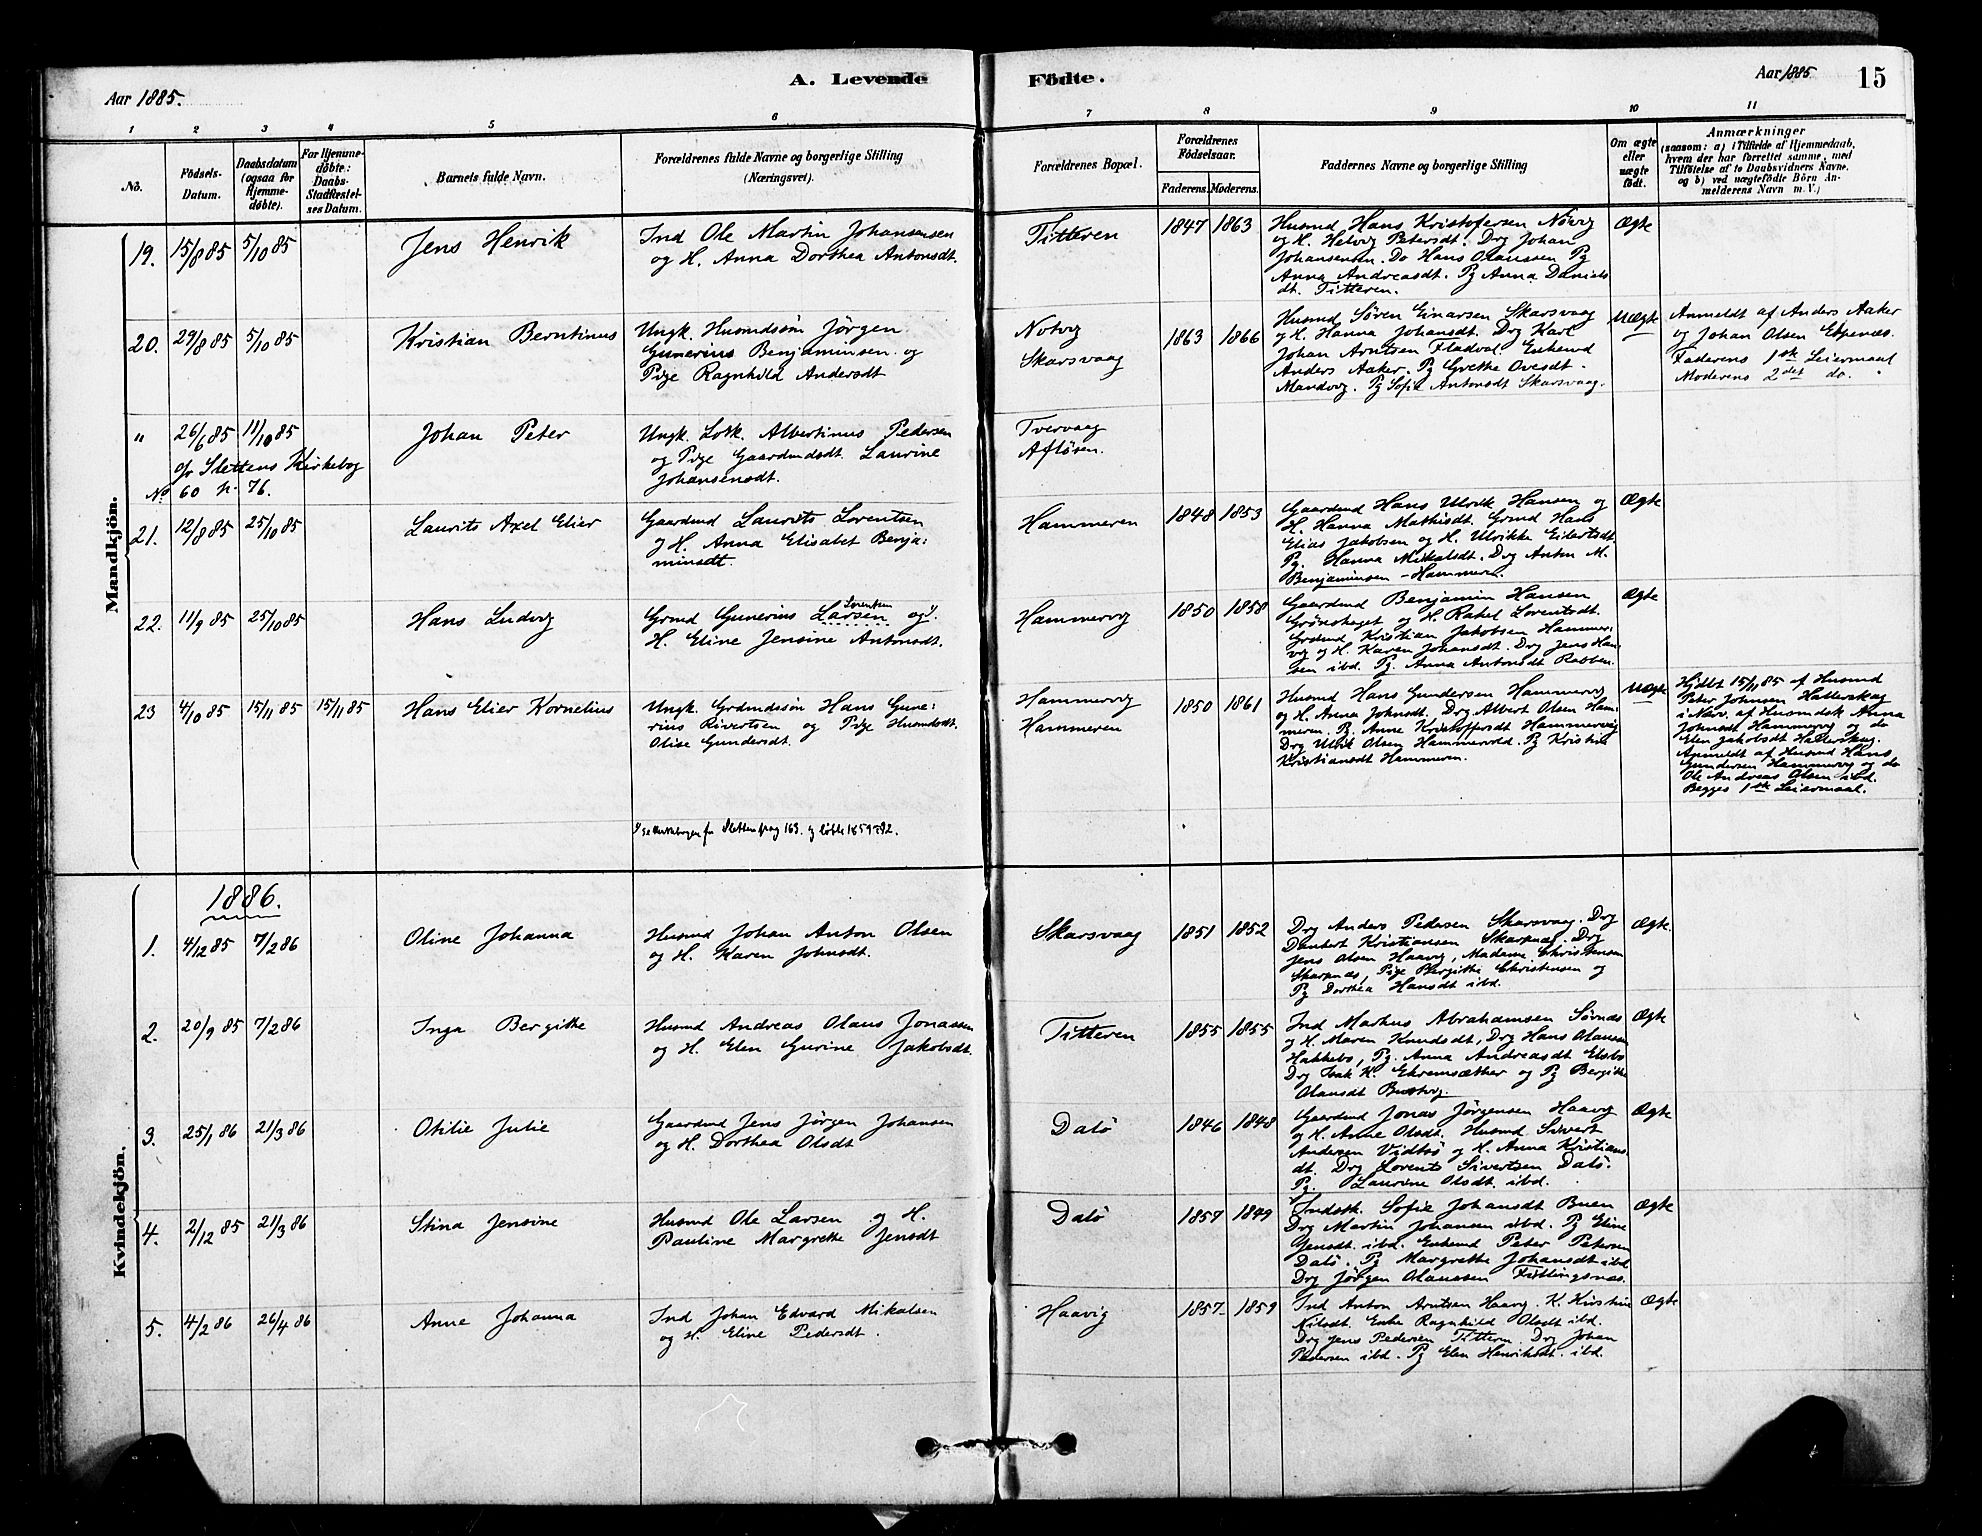 Aar 1885.
A. Levende
Födte.
Aar 1885
15
1 2 3 4 5 6 7 8 9 10 11
No.
Födsels-Datum.
Daabsdatum (ogsaa for Hjemme-döbte).
For Hjemme-döbte: Daabs-Stadfæstel-ses Datum.
Barnets fulde Navn.
Forældrenes fulde Navne og borgerlige Stilling (Næringsvei).
Forældrenes Bopæl.
Forældrenes Födselsaar.
Faderens. Moderens.
Faddernes Navne og borgerlige Stilling
Om ægte eller uægte födt.
Anmærkninger
(saasom: a) i Tilfælde af Hjemmedaab, hvem der har forrettet samme, med Tilföielse af to Daabsvidners Navne, og b) ved uægtefödte Börn Anmelderens Navn m. V.)
Mandkjön.
19. 15/8 85 5/10 85 Jens Henrik
Ind Ole Martin Johansensen
og H. Anna Dorthea Antonsdt.
Titteren 1847 1863
Husmd Hans Kristofersen Notvig
og H. Helvig Petersdt. Drg Johan
Johansensen. Do Hans Olaussen Pg
Anna Andreasdt. Pg Anna Daniels
dt. Titteren.
Ægte
20. 29/8 85 5/10 85 Kristian Berntinus
Ungk. Husmdssön Jörgen
Gunerius Benjaminsen og
Pige Ragnhild Andersdt
Notvig
Skarsvaag
1863 1866
Husmd Sören Einarsen Skarsvaag
og H. Hanna Johansdt. Drg Karl
Johan Arntsen Fladval. Enkemd
Anders Aaker. Pg Grethe Ovesdt.
Mandvig. Pg Sofie Antonsdt Skarsvaag.
Uægte
Anmeldt af Anders Aaker
og Johan Olsen Espenæs.
Faderens 1ste Leiermaal
Moderens 2det do.
" 26/6 85 11/10 85 Johan Peter
cfr Slettens Kirkebog
No 60 p. 76.
Ungk. Losk. Albertinus Pedersen
og Pige Gaardmdsdt. Laurine
Johansensdt.
Tvervaag
Aflösen.
21. 12/8 85 25/10 85 Laurits Axel Elier
Gaardmd Laurits Lorentsen
og H. Anna Elisabet Benja-
minsdt.
Hammeren 1848 1853
Gaardmd Hans Ulrik Hansen og
H. Hanna Mathisdt. Grmd Hans
Elias Jakobsen og H. Ulrikke Eilertsdt
Pg. Hanna Mikalsdt. Drg Anton M.
Benjaminsen – Hammeren.
Ægte
22. 11/9 85 25/10 85 Hans Ludvig
Grmd Gunerius Larsen Lorentsen og 1)
H. Eline Jensine Antonsdt.
Hammervig 1850 1858
Gaardmd Benjamin Hansen
Grönskaget og H. Rakel Lorentsdt.
Grdmd Kristian Jakobsen Hammer-
vig og H. Karen Johansdt. Drg Jens Han-
sen ibd. Pg. Anna Antonsdt Rabben.
Ægte
23 4/10 85 15/11 85 15/11 85 Hans Elier Kornelius
Ungk. Grdmdssön Hans Gune-
rius Sivertsen og Pige Husmdsdt.
Olise Gundersdt.
Hammervig
Hammeren
1850 1861
Husmd Hans Gundersen Hammervig
og H. Anna Johnsdt. Drg Albert Olsen Ham-
meren. Pg. Anne Kristoffersdt Hammervig
Drg Ulrik Olsen Hammervold. Pg Kristine
Kristiansdt Hammeren.
Uægte
Hjdbt 15/11 85 af Husmd
Peter Johnsen Hatterskag
i Nærv. af Husmdsk Anna
Johnsdt Hammervig og do
Elen Jakobsdt Hatterskag.
Anmeldt af Husmd Hans
Gundersen Hammervig og do
Ole Andreas Olsen ibd.
Begges 1ste Leiermaal.
1) se Kirkebogen for Sletten pag 163. og 1859 p 92.
Kvindekjön.
1886.
1. 4/12 85 7/2 86 Oline Johanna
Husmd Johan Anton Olsen
og H. Karen Johnsdt.
Skarsvaag 1851 1852
Drg Anders Pedersen Skarsvaag. Drg
Kristiansen Drg
Jens Olsen Haavig, Madame Christensen
Skarpnæs, Pige Bergitte Christensen og
Pg Dorthea Hansdt ibd.
Ægte.
2. 20/9 85 7/2 86 Inga Bergitte
Husmd Andreas Olaus Jonassen
og H. Elen Gurine Jakobsdt.
Titteren 1855 1855
Ind Markus Abrahamsen Sörnæs
og H. Maren Knudsdt, Drg Hans Olaussen
Hakkebo, Pg. Anna Andreasdt
Drg Isak K. Ekremsæther og Pg Bergitte
Olausdt
Ægte
3. 25/1 86 21/3 86 Otilie Julie
Gaardmd Jens Jörgen Johansen
og H. Dorthea Olsdt
Dalö 1846 1848
Gaardmd Jonas Jörgensen Haavig
og H. Anne Olsdt. Husmd Sivert
Andersen Vidtsö og H. Anna Kristians
dt. Drg Lorents Sivertsen Dalö.
Pg. Laurine Olsdt ibd.
Ægte
4. 2/12 85 21/3 86 Stina Jensine
Husmd Ole Larsen og H.
Pauline Margrethe Jensdt
Dalö 1857 1849
Indstk. Sofie Johansdt Buen
Drg Martin Johansen ibd. Pg Eline
Jensdt. ibd. Enkemd Peter Petersen
Dalö. Pg Margrethe Johansdt ibd
Drg Jörgen Olaussen Fillingsnæs.
Ægte
5. 4/2 86 26/4 86 Anne Johanna
Ind Johan Edvard Mikalsen
og H. Eline Pedersdt.
Haavig 1857 1859
Ind Anton Arntsen Haavig. K. Kirstine
Nilsdt. Enke Ragnhild Olsdt ibd.
Drg Jens Pedersen Titteren. Drg Johan
Pedersen ibd. Pg Elen Henriksdt. ibd.
Ægte